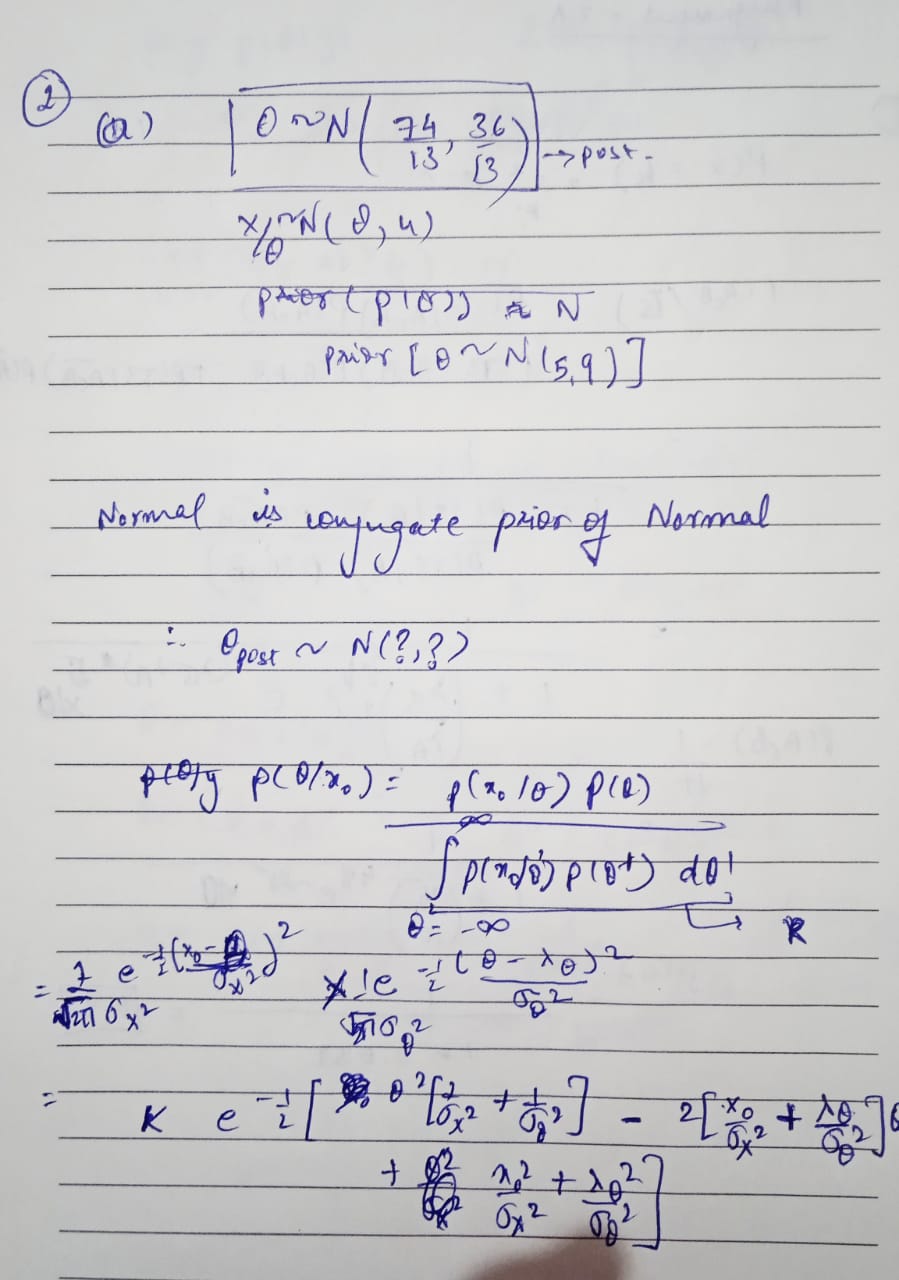 ②
(a) θ ~ N(74/13, 36/13) → post.
x/θ ~ N(θ, 4)
prior (p(θ)) ~ N
prior [θ ~ N(5,9)]
Normal is conjugate prior of Normal
∴ θpost ~ N(?,?)
p(θ/x₀) = p(x₀/θ) P(θ)
∫ p(x₀/θ') p(θ') dθ'
θ' = -∞ ∞ → K
= 1/√2π σx² e^-1/2 (x₀-θ)²/σx² × 1/√2π σθ² e^-1/2 (θ-λθ)²/σθ²
= K e^-1/2 [ θ² [1/σx² + 1/σθ²] - 2[x₀/σx² + λθ/σθ²]θ
+ x₀²/σx² + λθ²/σθ² ]